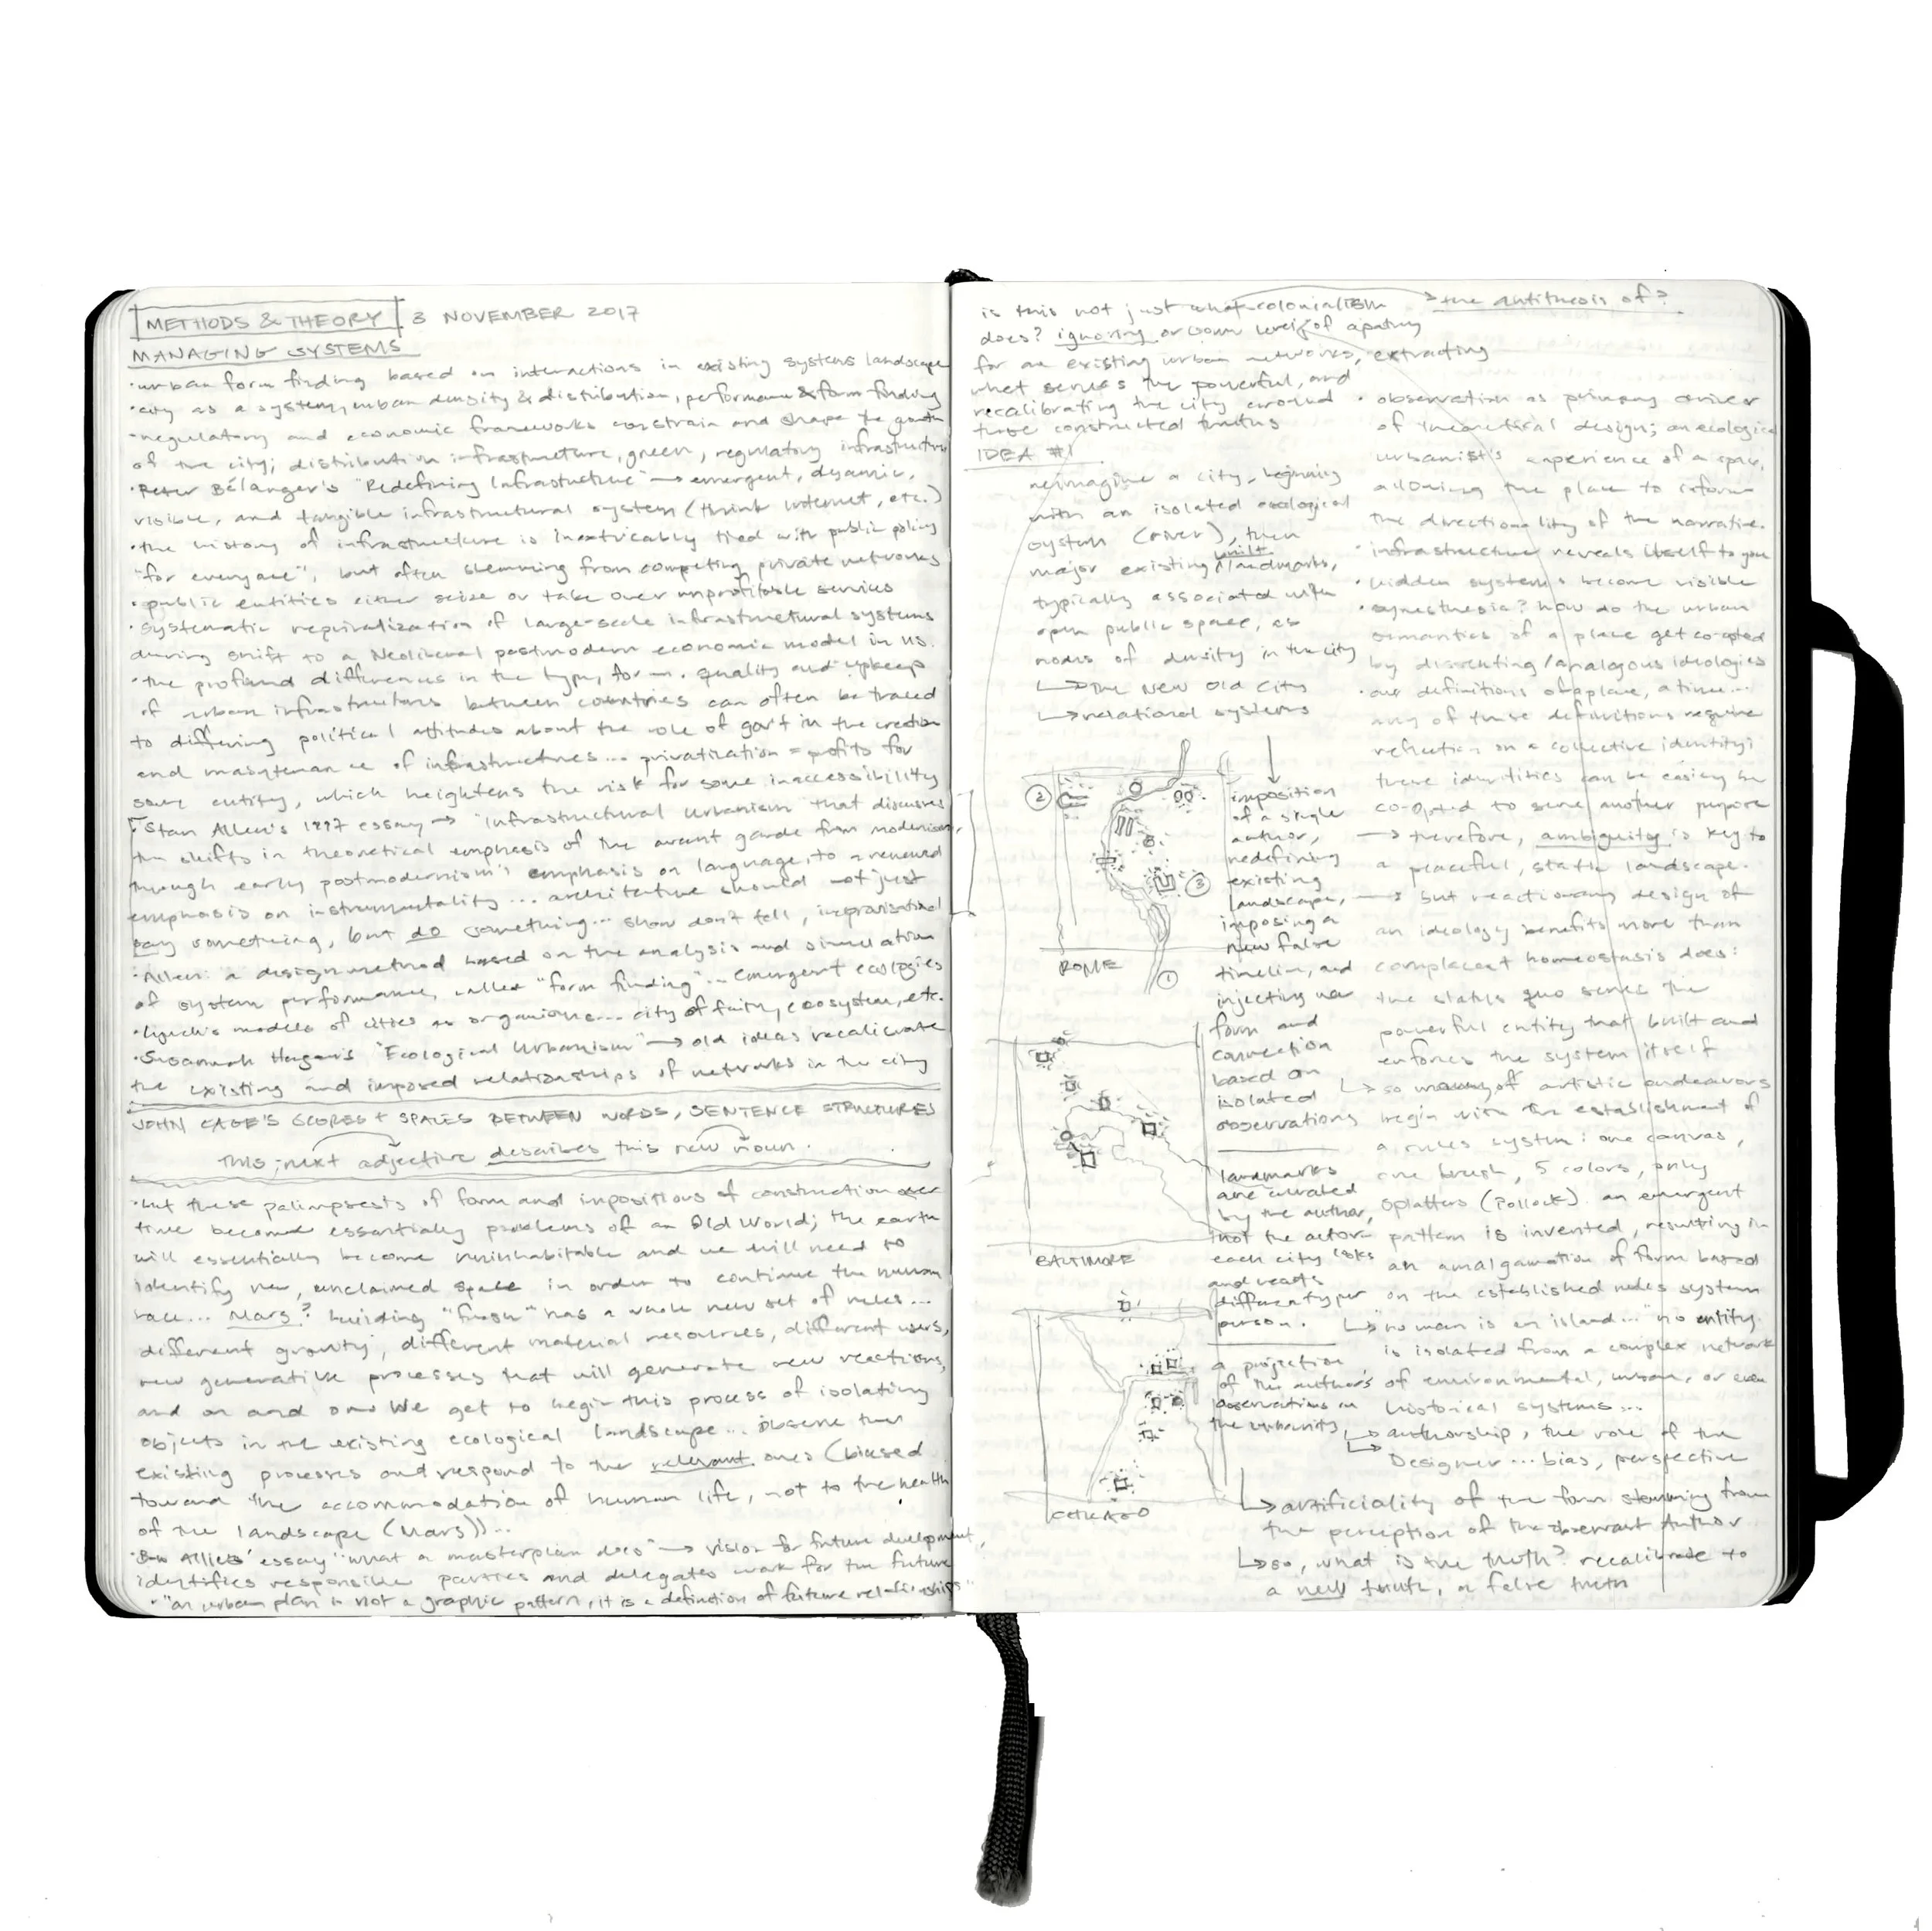 METHODS & THEORY 3 NOVEMBER 2017
MANAGING SYSTEMS
·urban form finding based on interactions in existing systems landscape
·city as a system, urban density & distribution, performance & form finding
·regulatory and economic frameworks constrain and shape the growth
of the city; distribution infrastructure, green, regulatory infrastructure
·Peter Bélanger's "Redefining Infrastructure" → emergent, dynamic,
visible, and tangible infrastructural system (think internet, etc.)
·the history of infrastructure is inextricably tied with public policy
"for everyone", but often stemming from competing private networks
·public entities either seize or take over unprofitable services
·systematic reprivatization of large-scale infrastructural systems
during shift to a Neoliberal postmodern economic model in US.
·the profound differences in the type, form, quality and upkeep
of urban infrastructures between countries can often be traced
to differing political attitudes about the role of gov't in the creation
and maintenance of infrastructures... privatization = profits for
some entity, which heightens the risk for some inaccessibility
·Stan Allen's 1997 essay → "Infrastructural Urbanism" that discusses
the shifts in theoretical emphasis of the avant garde from modernism,
through early postmodernism's emphasis on language, to a renewed
emphasis on instrumentality... architecture should not just
say something, but do something... show don't tell, improvisational
·Allen: a design method based on the analysis and simulation
of system performance, called "form finding"... emergent ecologies
·Lynch's models of cities as organisms... city of faith, ecosystem, etc.
·Susannah Hagan's "Ecological Urbanism" → old ideas recalibrate
the existing and imposed relationships of networks in the city
JOHN CAGE'S SCORES + SPACES BETWEEN WORDS, SENTENCE STRUCTURES
this next adjective describes this new noun.
·but these palimpsests of form and impositions of construction over
time become essentially problems of an Old World; the earth
will essentially become uninhabitable and we will need to
identify new, unclaimed space in order to continue the human
race... Mars? building "fresh" has a whole new set of rules...
different gravity, different material resources, different users,
new generative processes that will generate new reactions,
and on and on. We get to begin this process of isolating
objects in the existing ecological landscape... observe their
existing processes and respond to the relevant ones (biased
toward the accommodation of human life, not to the health
of the landscape (Mars))...
essay "what a masterplan does" → vision for future development,
identifies responsible parties and delegates work for the future
·"an urban plan is not a graphic pattern, it is a definition of future relationships"
is this not just what colonialism → the antithesis of?
does? ignoring or some level of apathy
for an existing urban networks, extracting
what serves the powerful, and
recalibrating the city around
those constructed truths
IDEA #1
reimagine a city, beginning
with an isolated ecological
system (river), then
major existing built landmarks,
typically associated with
open public space, as
nodes of density in the city
↳ the New Old City
↳ relational systems
②
③
①
ROME
BALTIMORE
CHICAGO
imposition
of a single
author,
redefining
existing
landscape,
imposing a
new false
timeline, and
injecting new
form and
connection
based on
isolated
observations
landmarks
are curated
by the author,
not the actor
each city looks
and reacts
differently per
person.
a projection
of the author's
observations on
the urbanity
· observation as primary driver
of theoretical design; an ecological
urbanist's experience of a space,
allowing the place to inform
the directionality of the narrative.
· infrastructure reveals itself to you
· hidden systems become visible
· synesthesia? how do the urban
semantics of a place get co-opted
by dissenting/analogous ideologies
· our definitions of a place, a time...
any of these definitions require
reflection on a collective identity;
these identities can be easily be
co-opted to serve another purpose
→ therefore, ambiguity is key to
a peaceful, static landscape.
→ but reactionary design of
an ideology benefits more than
complacent homeostasis does:
the status quo serves the
powerful entity that built and
enforces the system itself
↳ so many of artistic endeavors
begin with the establishment of
a rules system: one canvas,
one brush, 5 colors, only
splatters (Pollock). an emergent
pattern is invented, resulting in
an amalgamation of form based
on the established rules system
↳ "no man is an island..." no entity
is isolated from a complex network
of environmental, urban, or even
historical systems...
↳ authorship, the role of the
↳ Designer... bias, perspective
↳ artificiality of the form stemming from
the perception of the observant Author
↳ so, what is the truth? recalibrate to
a new truth, a false truth